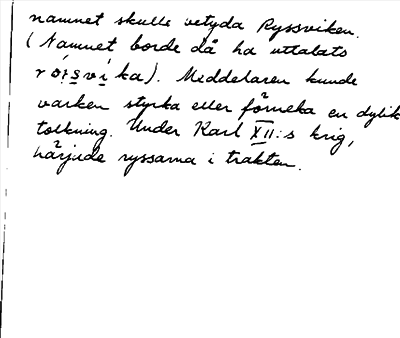 namnet skulle vetyda Ryssviken.
(Namnet borde då ha uttalats
ró̤i̤s̱vi̱ka). Meddelaren kunde
varken styrka eller förneka en dylik
tolkning. Under Karl XII:s krig,
härjade ryssarna i trakten.